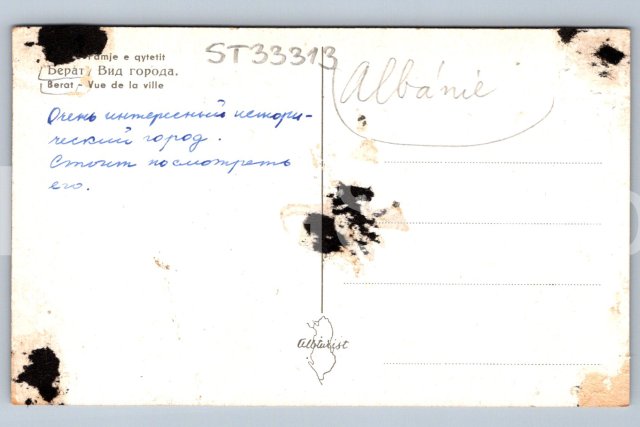 ST33313
amje e qytetit
Берат, Вид города.
Berat - Vue de la ville
Albánie
Очень интересный истори-
ческий город.
Стоит посмотреть
его.
Albturist